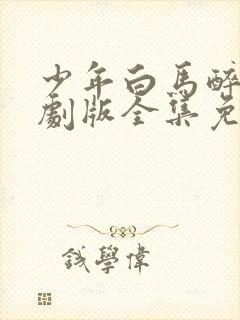 少年白马醉
劇版全集免
錢學偉